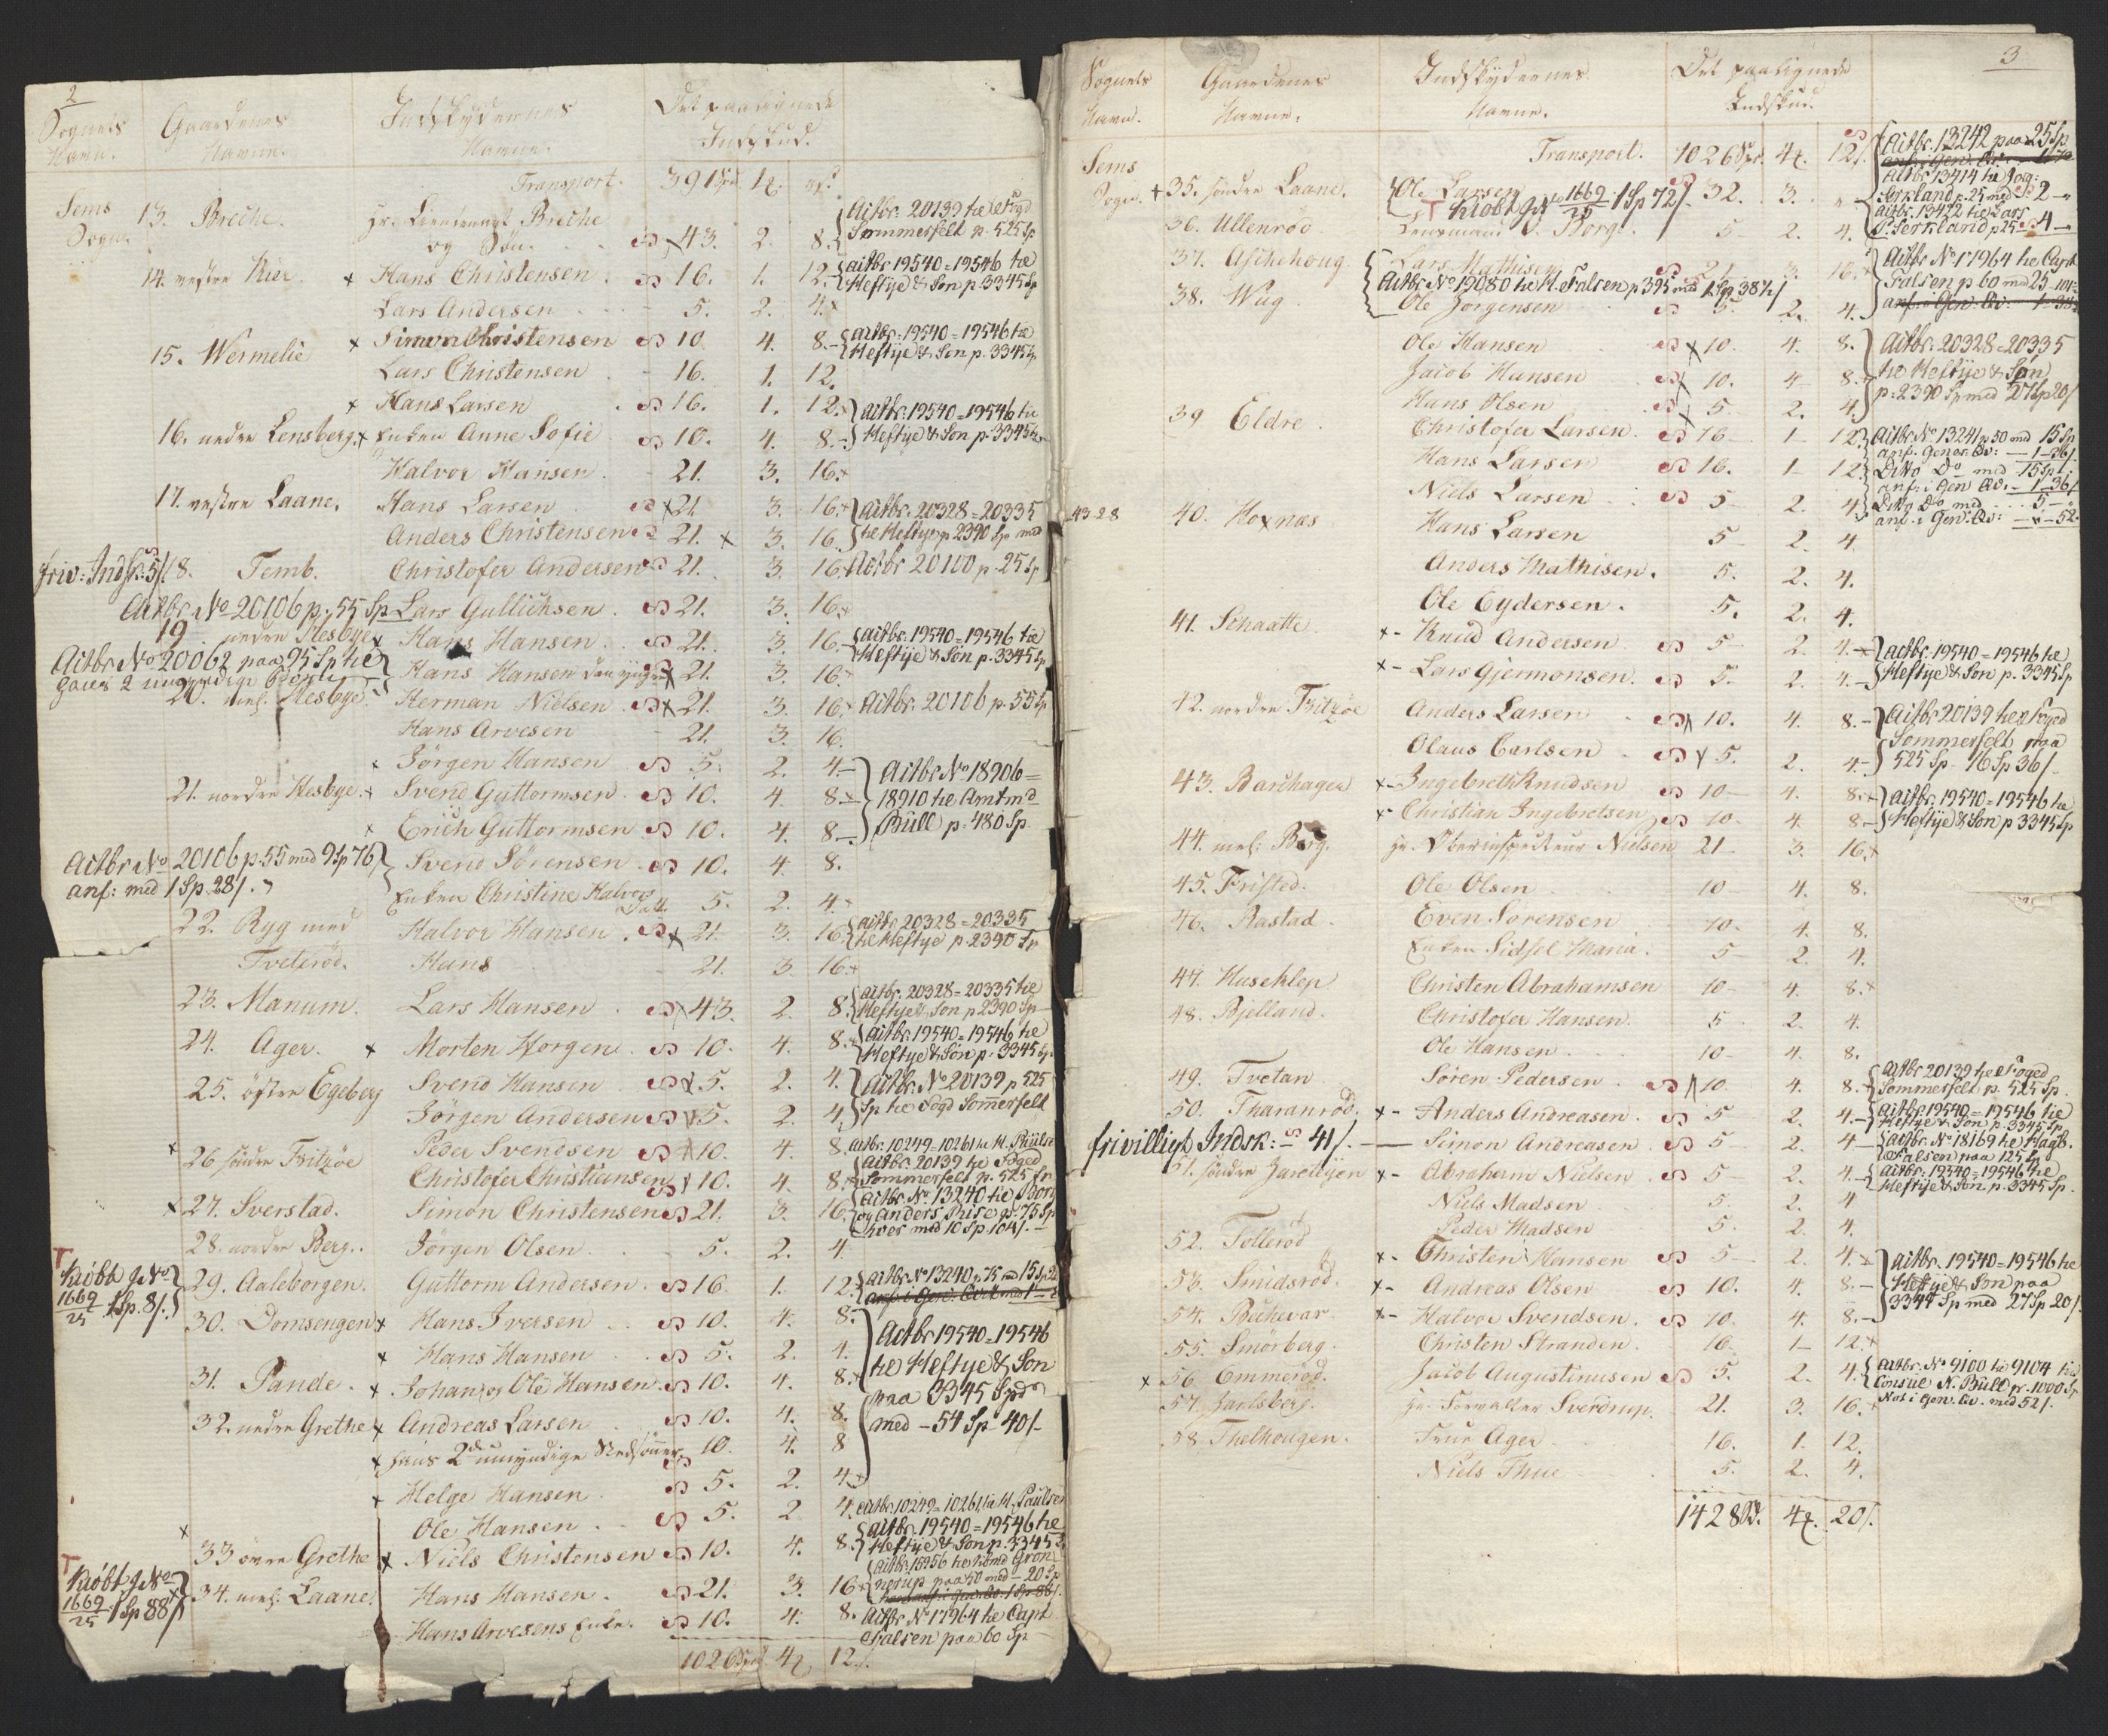 2
Sognets Navn. Gaardenes Navne. Indskydernes Navne. Det paalignede Indskud.
Transport. 391 Spd. 1
Sems Sogn. 13. Breche. Hr. Lieutenant Breche
og Søn. 43. 2. 8. Actbr. 20139 til Fogd Sommerfelt p. 525 Sp
14. vestre Kier. x Hans Christensen 16. 1. 12. Actbr 19540=19546 til Heftye & Søn p. 3345 Sp
Lars Andersen 5. 2. 4.
15. Wermelie x Simon Christensen 10. 4. 8. Actbr. 19540=19546 til Heftye & Søn p. 3345 Sp
Lars Christensen 16. 1. 12.
x Hans Larsen 16. 1. 12. Actbr. 19540=19546 til
16. nedre Lensberg. x Enken Anne Sofie 10. 4. 8. Heftye & Søn p. 3345
Halvor Hansen 21. 3. 16.
17. vestre Laane. Hans Larsen 21. 3. 16. Actbr. 20328=20335
Anders Christensen 21. x 3. 16. til Heftye p. 2390 Sp med
friv: Indsk: 5/ 18. Temb. Christofer Andersen 21. 3. 16. Actbr 20100 p. 25 Sp
Actbr No 20106 p. 55 Sp Lars Gullichsen 21. 3. 16.
19 nedre Hesbye x Hans Hansen 21. 3. 16. Actbr. 19540=19546 til Heftye & Søn p. 3345 Sp
Actbr No 20062 paa 95 Sp til Hans Hansen den yngre 21. 3. 16.
2 umyndige
20. mel. Hesbye. Herman Nielsen 21. 3. 16. Actbr. 20106 p. 55 Sp
Hans Arvesen 21. 3. 16.
x Jörgen Hansen 5. 2. 4. Actbr No 18906=
21. nordre Hesbye. x Svend Guttormsen 10. 4. 8. 18910 til Amtmd
x Erich Guttormsen 10. 4. 8. Büll p. 480 Sp.
Actbr No 20106 p. 55 med 9 Sp 76 Svend Sörensen 10. 4. 8.
anf: med 1 Sp. 28/. Enken Christine Halvors Datt. 5. 2. 4.
22. Ryg med Halvor Hansen 21. 3. 16. Actbr 20328=20335 til Heftye p. 2390 Sp
Tveteröd. Hans 21. 3. 16.
23. Manum. Lars Hansen 43. 2. 8. Actbr. 20328=20335 til Heftye & Søn p 2390 Sp
24. Ager. x Morten Horgen 10. 4. 8. Actbr. 19540=19546 til Heftye & Søn p. 3345 Sp.
25. östre Egeberg Svend Hansen 5. 2. 4. Actbr. No 20139 p. 525
Jörgen Andersen 5. 2. 4. Sp til Fogd Sommerfelt
x 26 söndre Fritzöe Peder Svendsen 10. 4. 8. Actbr. 10249=10261 til N. Paulsen
Christofer Christiansen 10. 4. 8. Actbr. 20139 til Foged Sommerfelt p. 525 Sp
x 27. Sverstad. Simon Christensen 21. 3. 16. Actbr. No 13240 til Borg og Anders Riise p. 75 Sp hver med 10 Sp. 104/.
28. nordre Berg. Jörgen Olsen 5. 2. 4.
Kiöbt g. No 1669/25 1 Sp. 8/. 29. Aaleborgen. Guttorm Andersen 16. 1. 12. Actbr No 13240 p. 75 med 15 Sp
30. Domsengen x Hans Iversen 10. 4. 8. Actbr 19540=19546
x Hans Hansen 5. 2. 4. til Heftye & Søn
31. Pande. x Johan og Ole Hansen 10. 4. 8. paa 3345 Spd
32. nedre Grethe x Andreas Larsen 10. 4. 8. med - 54 Sp 40/-
x hans 2de umyndige Stedsönner 10. 4. 8
x Helge Hansen 5. 2. 4.
Ole Hansen 5. 2. 4. Actbr 10249=10261 til N. Paulsen
x 33 övre Grethe x Niels Christensen 10. 4. 8. Actbr. 19540=19546 til Heftye & Søn p. 3345
Kiöbt g. No 1669/25 1 Sp 88/ x 34. mel. Laane. Hans Hansen 21. 3. 16. Actbr. 15956 til Grönnerup paa 50 med - 20 Sp
Hans Arvesens Enke. 10. 4. 8. Actbr No 17964 til Capt Falsen paa 60 Sp
1026 Spd. 4 12/.
3
Sognets Navn. Gaardenes Navne. Indskydernes Navne. Det paalignede Indskud.
Transport. 1026 Spd. 4. 12/. Actbr. 13242 paa 25 Sp
Sems Sogn. + 35. söndre Laane. Ole Larsen 32. 3. Actbr 13414 til Jörg: Serkland p. 25 med 2
Kiöbt g. No 1669/25 1 Sp 72/. Actbr. 13422 til Lars
36. Ullenröd Lensmand Borge 5. 2. 4. Serkland p 25 4
37. Aschehoug Lars Mathisen 21. 3. 16. Actbr No 17964 til Capt
Actbr No 19080 til H. Falsen p 395 med 1 Sp 38½/ Falsen p 60 med 25-101
38. Wug Ole Jörgensen 5. 2. 4.
Ole Hansen x 10. 4. 8. Actbr. 20328=20335
Jacob Hansen 10. 4 8. til Heftye & Søn
Hans Olsen 5. 2. 4. p. 2390 Sp med 27 Sp 20/
39 Eldre Christofer Larsen 16 1 12. Actbr No 13241 p 50 med 15 Sp anf. Gener. Qv: 1-36/
Hans Larsen 16. 1 12. Ditto Do med 15 Sp anf. i Gen Qv. 1-36/
Niels Larsen 5 2. 4. Ditto Do med 5 anf. i Gen. Qv: 52.
4328 40. Hoxnæs Hans Larsen 5 2. 4.
Anders Mathisen. 5. 2. 4.
Ole Eydersen. 5. 2. 4.
41. Schaatte x- Knud Andersen 5 2. 4. Actbr. 19540=19546 til
x- Lars Gjermonsen 5. 2. 4. Heftye & Søn p. 3345 Sp
42. nordre Fritzöe Anders Larsen 10. 4. 8. Actbr 20139 til Foged Sommerfelt paa
Olaus Carlsen 5. 2. 4. 525 Sp - 16 Sp 36/-
43. Barchager x- Ingebreth Knudsen 10 4. 8. Actbr. 19540=19546 til
x- Christian Ingebretsen 10. 4. 8 Heftye & Søn p 3345 Sp
44. mel: Berg. Hr. Oberinspecteur Nielsen 21 3. 16.
45. Fristed. Ole Olsen 10 4. 8.
46. Rastad. Even Sörensen 10. 4. 8.
Enken Sidsel Maria. 5 2. 4.
47. Huseklep Christen Abrahamsen 10 4. 8.
48. Bjelland. Christofer Hansen 5 2. 4.
Ole Hansen 10 4. 8.
49. Tvetan Sören Pedersen 10. 4. 8. Actbr 20139 til Foged Sommerfelt p. 525 Sp.
50. Tharanröd. x- Anders Andreasen 5 2. 4. Actbr. 19540=19546 til Heftye & Søn p. 3345 Sp
frivilligt Indsk: 41/. Simon Andreasen 5 2. 4 Actbr. No 18169 til Hagb. Falsen paa 125 Sp
51. söndre Jareteyen x- Abraham Nielsen 5 2. 4. Actbr. 19540=19546 til Heftye & Søn p. 3345 Sp.
Niels Madsen 5. 2. 4
Peder Madsen 5. 2. 4.
52. Tolleröd x- Christen Hansen 5 2. 4. Actbr. 19540=19546 til
53. Smidsröd. x- Andreas Olsen 10. 4. 8. Heftye & Søn paa
54. Buhevar x- Halvor Svendsen 10. 4. 8. 3344 Sp med 27 Sp 20/.
55. Smörberg. Christen Stranden 16. 1 12.
x 56 Ommeröd. Jacob Augustinusen 5. 2. 4. Actbr. No 9100 til 9104 til Consul N. Büll p. 1000 Sp
57. Jarlsberg. Hr. Forvalter Sverdrup. 21. 3. 16. Not i Gen. Qv. med 52/.
58 Thelhougen. Frue Ager 16. 1. 12.
Niels Thue 5. 2. 4.
1428 Spd. 4. 20/.